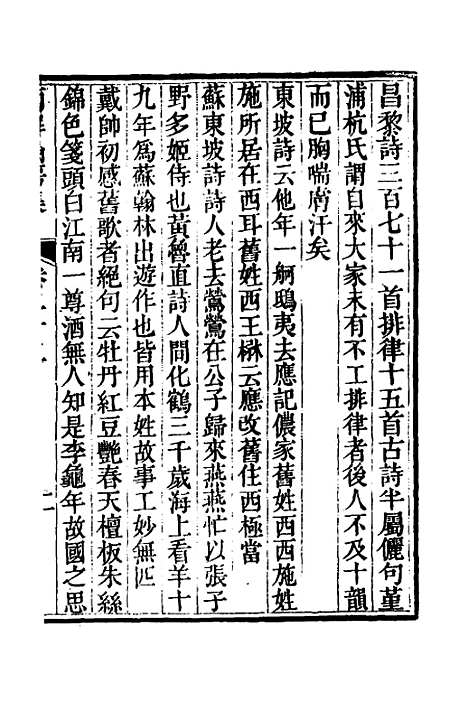 昌黎詩三百七十一首排律十五首古詩半屬儷句堇
浦杭氏謂自來大家未有不工排律者後人不及十韻
而已胸喘膚汗矣
東坡詩云他年一舸鴟夷去應記儂家舊姓西西施姓
施所居在西耳舊姓西王楙云應改舊住西極當
蘇東坡詩詩人老去鶯鶯在公子歸來燕燕忙以張子
野多姬侍也黃魯直詩人間化鶴三千歲海上看羊十
九年爲蘇翰林出遊作也皆用本姓故事工妙無匹
戴帥初感舊歌者絕句云牡丹紅豆艷春天檀板朱絲
錦色箋頭白江南一尊酒無人知是李龜年故國之思